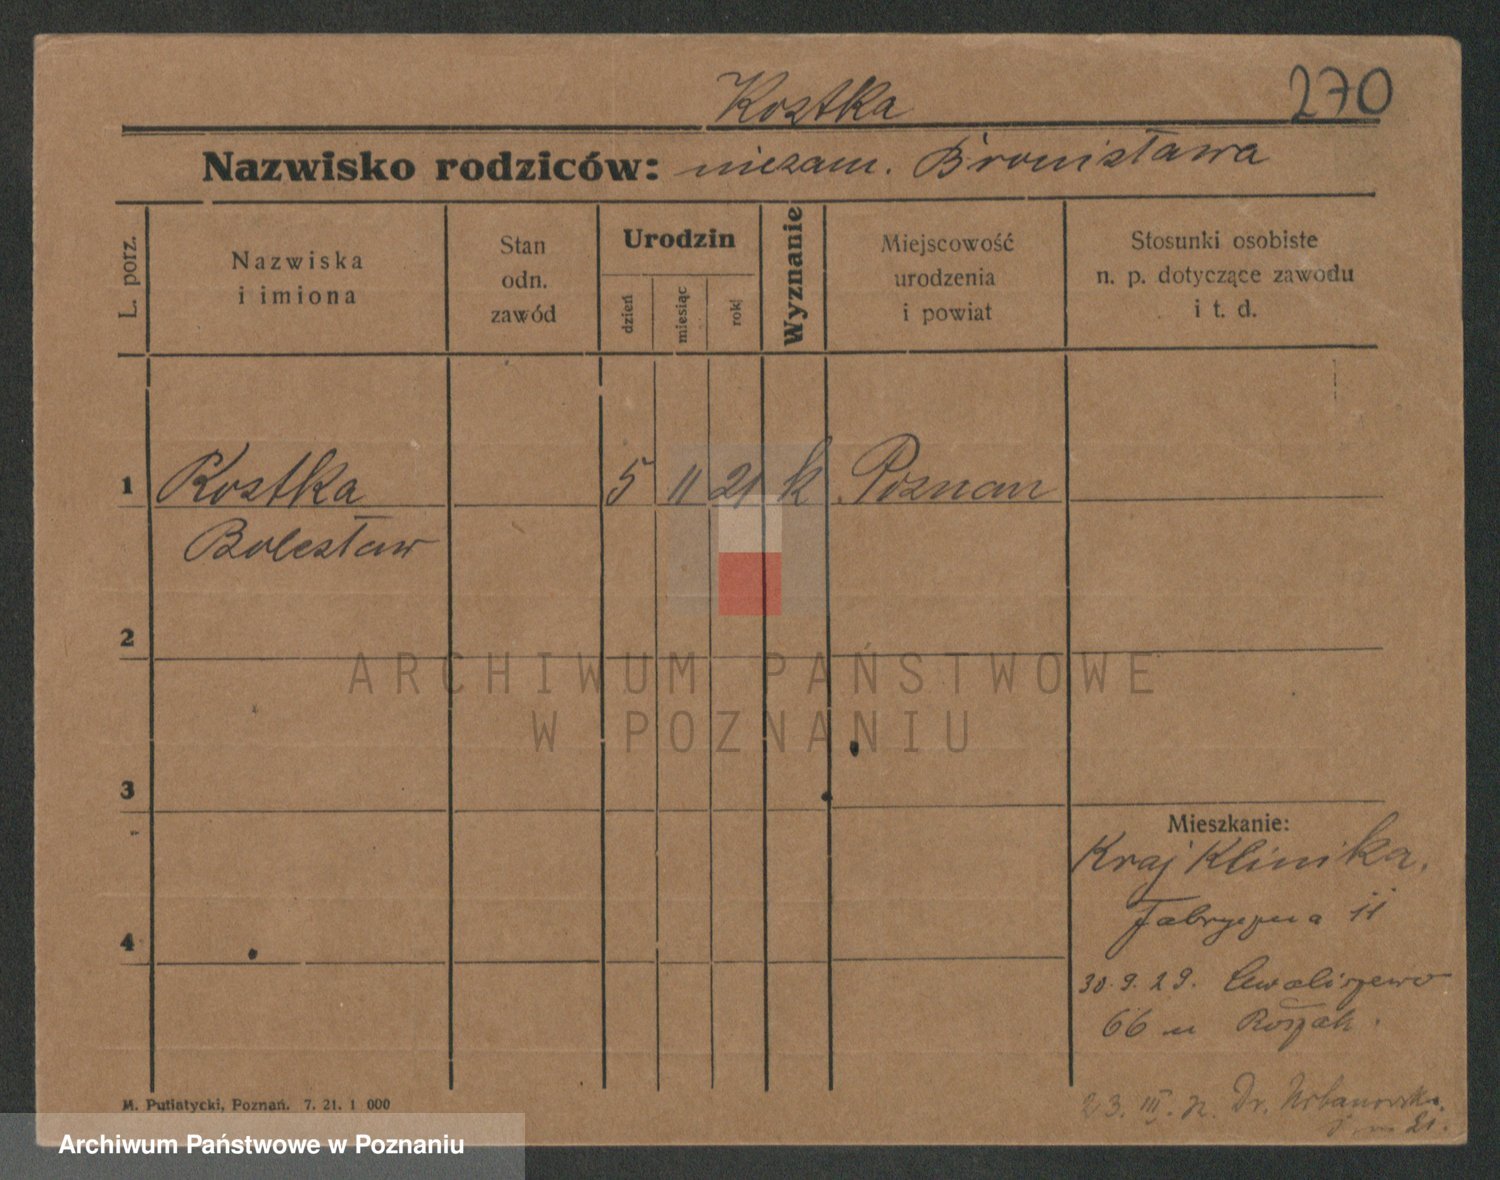 Kostka
270
Nazwisko rodziców: niezam. Bronisława
L. porz.
Nazwiska
i imiona
Stan
odn.
zawód
Urodzin
dzień
miesiąc
rok
Wyznanie
Miejscowość
urodzenia
i powiat
Stosunki osobiste
n. p. dotyczące zawodu
i t. d.
1 Kostka 5 11 21 k Poznan
Bolesław
2
ARCHIWUM PAŃSTWOWE
W POZNANIU
3
Mieszkanie:
Kraj Klinika.
Fabryczna 11
4
30.9.29. Chwaliszewo
66 u Roszak.
23. III. Dr. Urbanowska
21.
M. Putiatycki, Poznań. 7. 21. 1 000
Archiwum Państwowe w Poznaniu